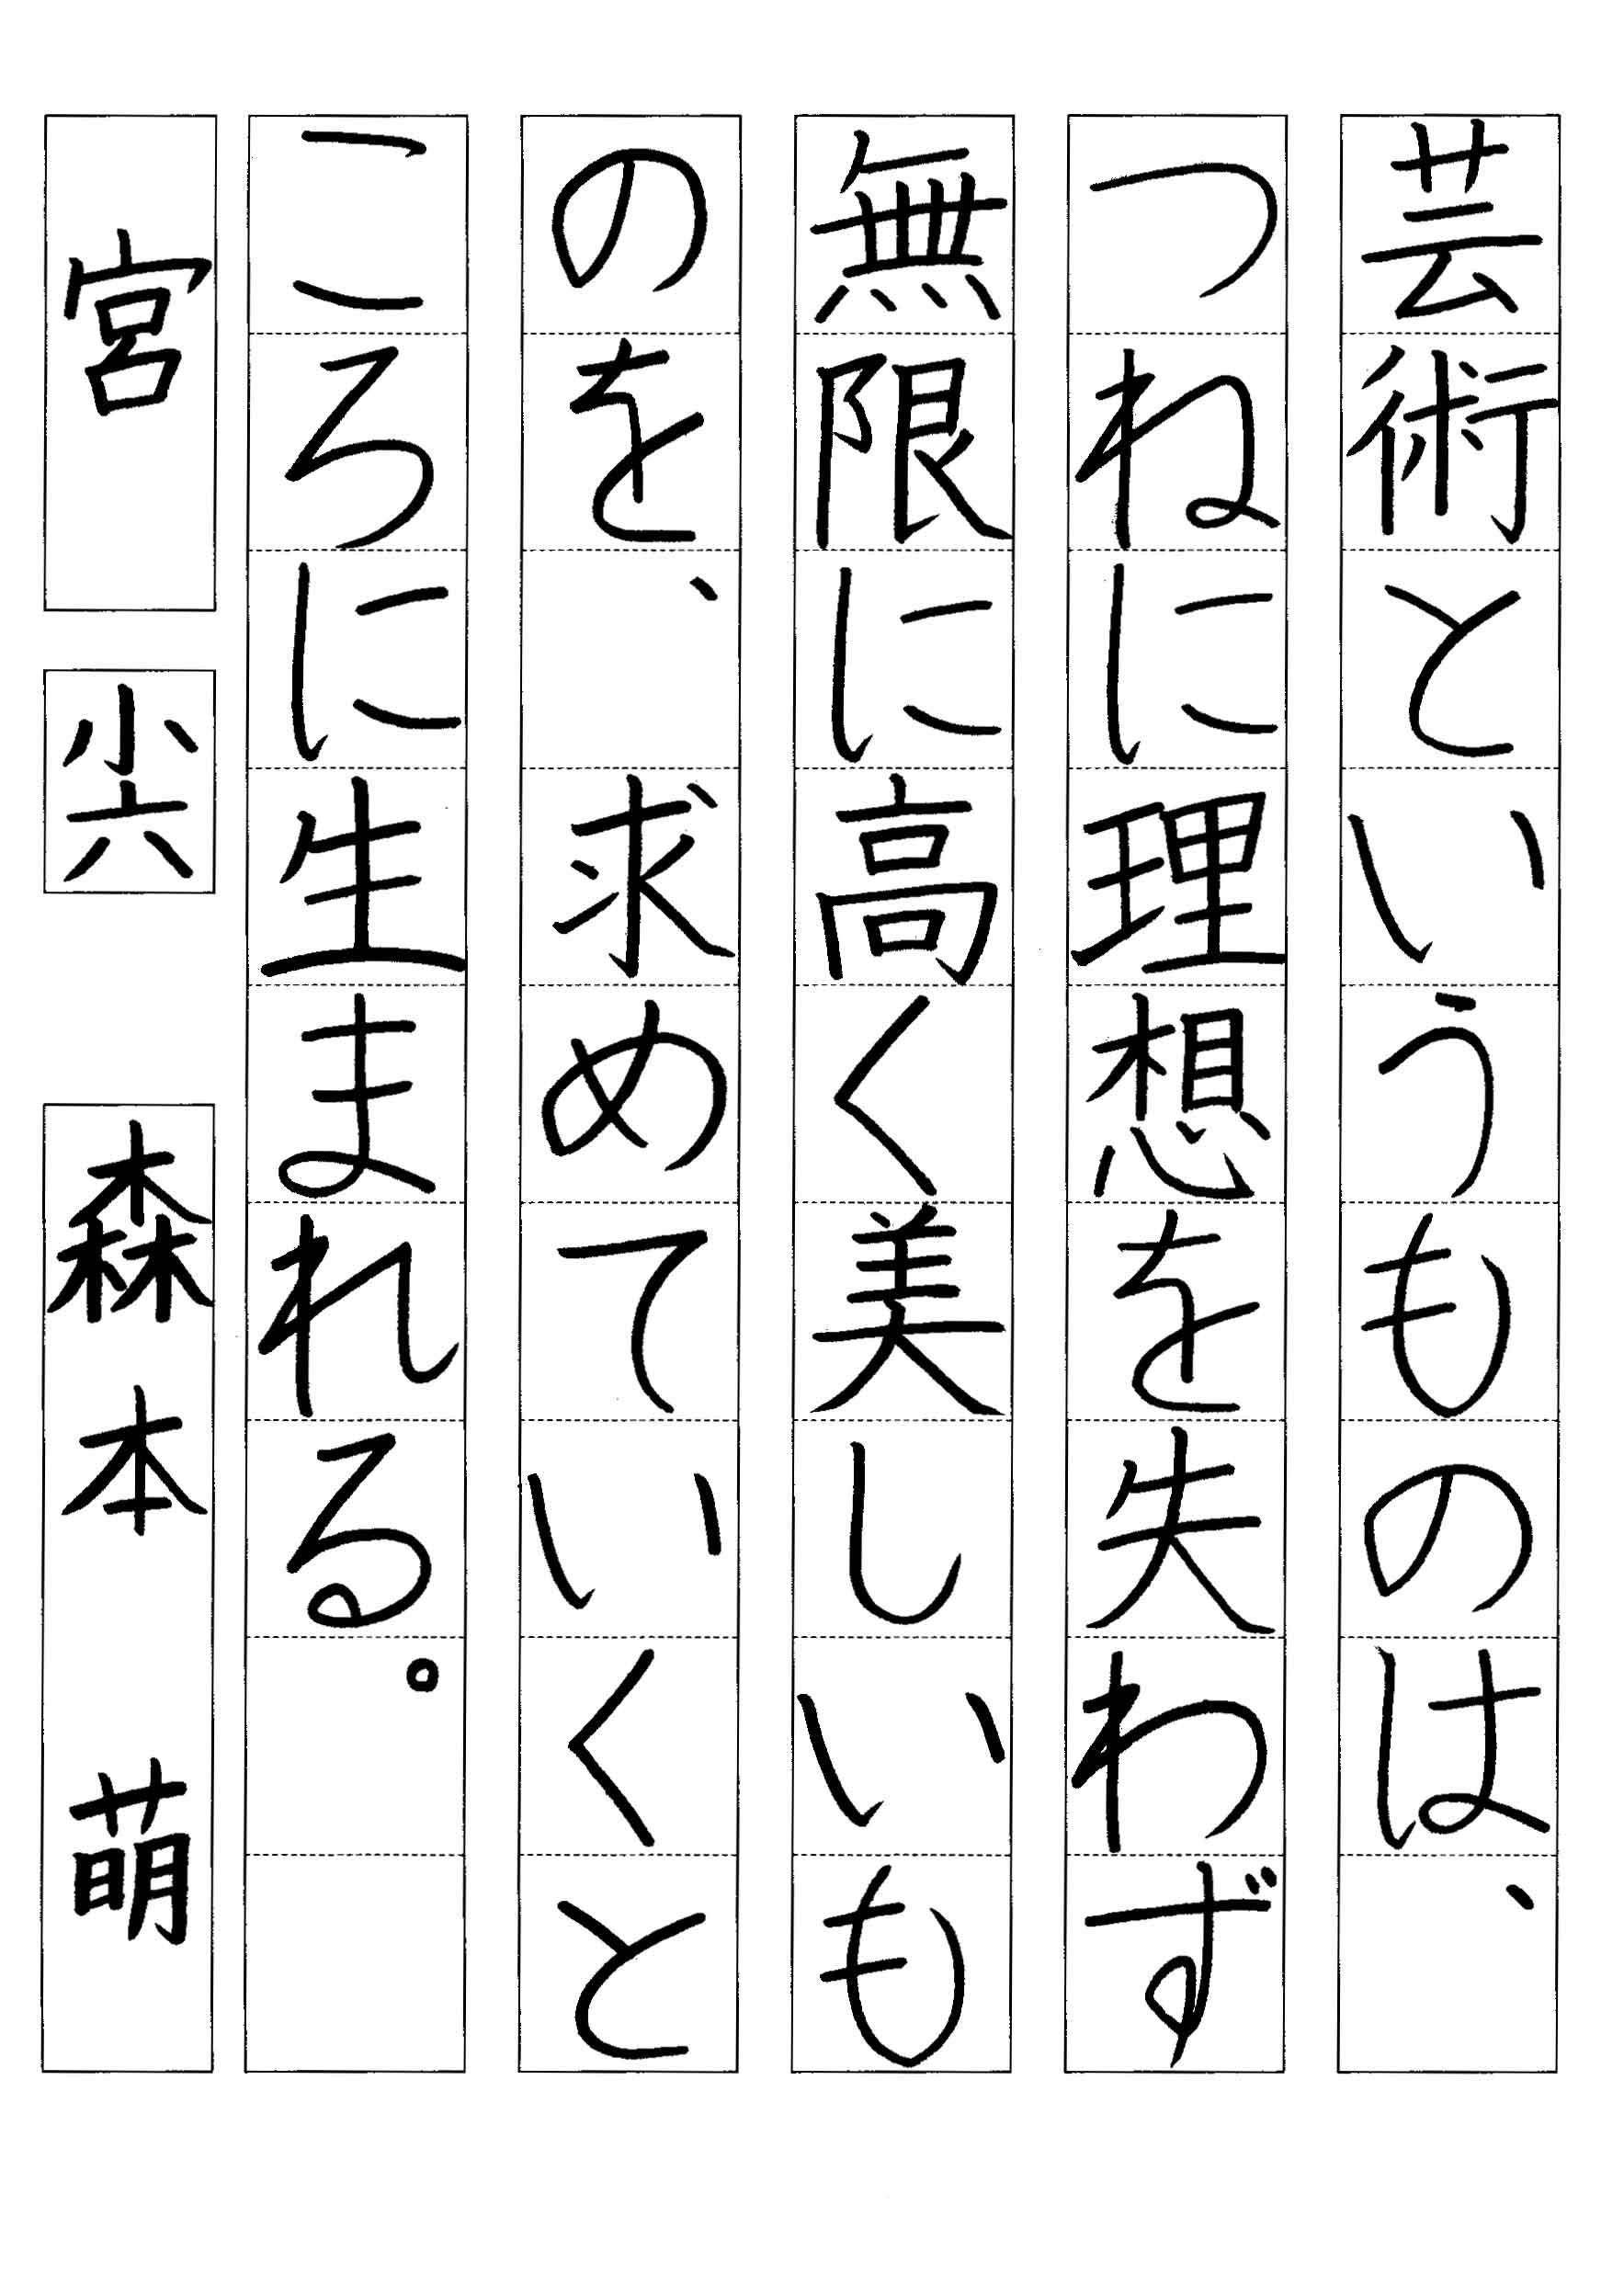 芸術というものは、
つねに理想を失わず
無限に高く美しいも
のを、求めていくと
ころに生まれる。
宮
小六
森本 萌